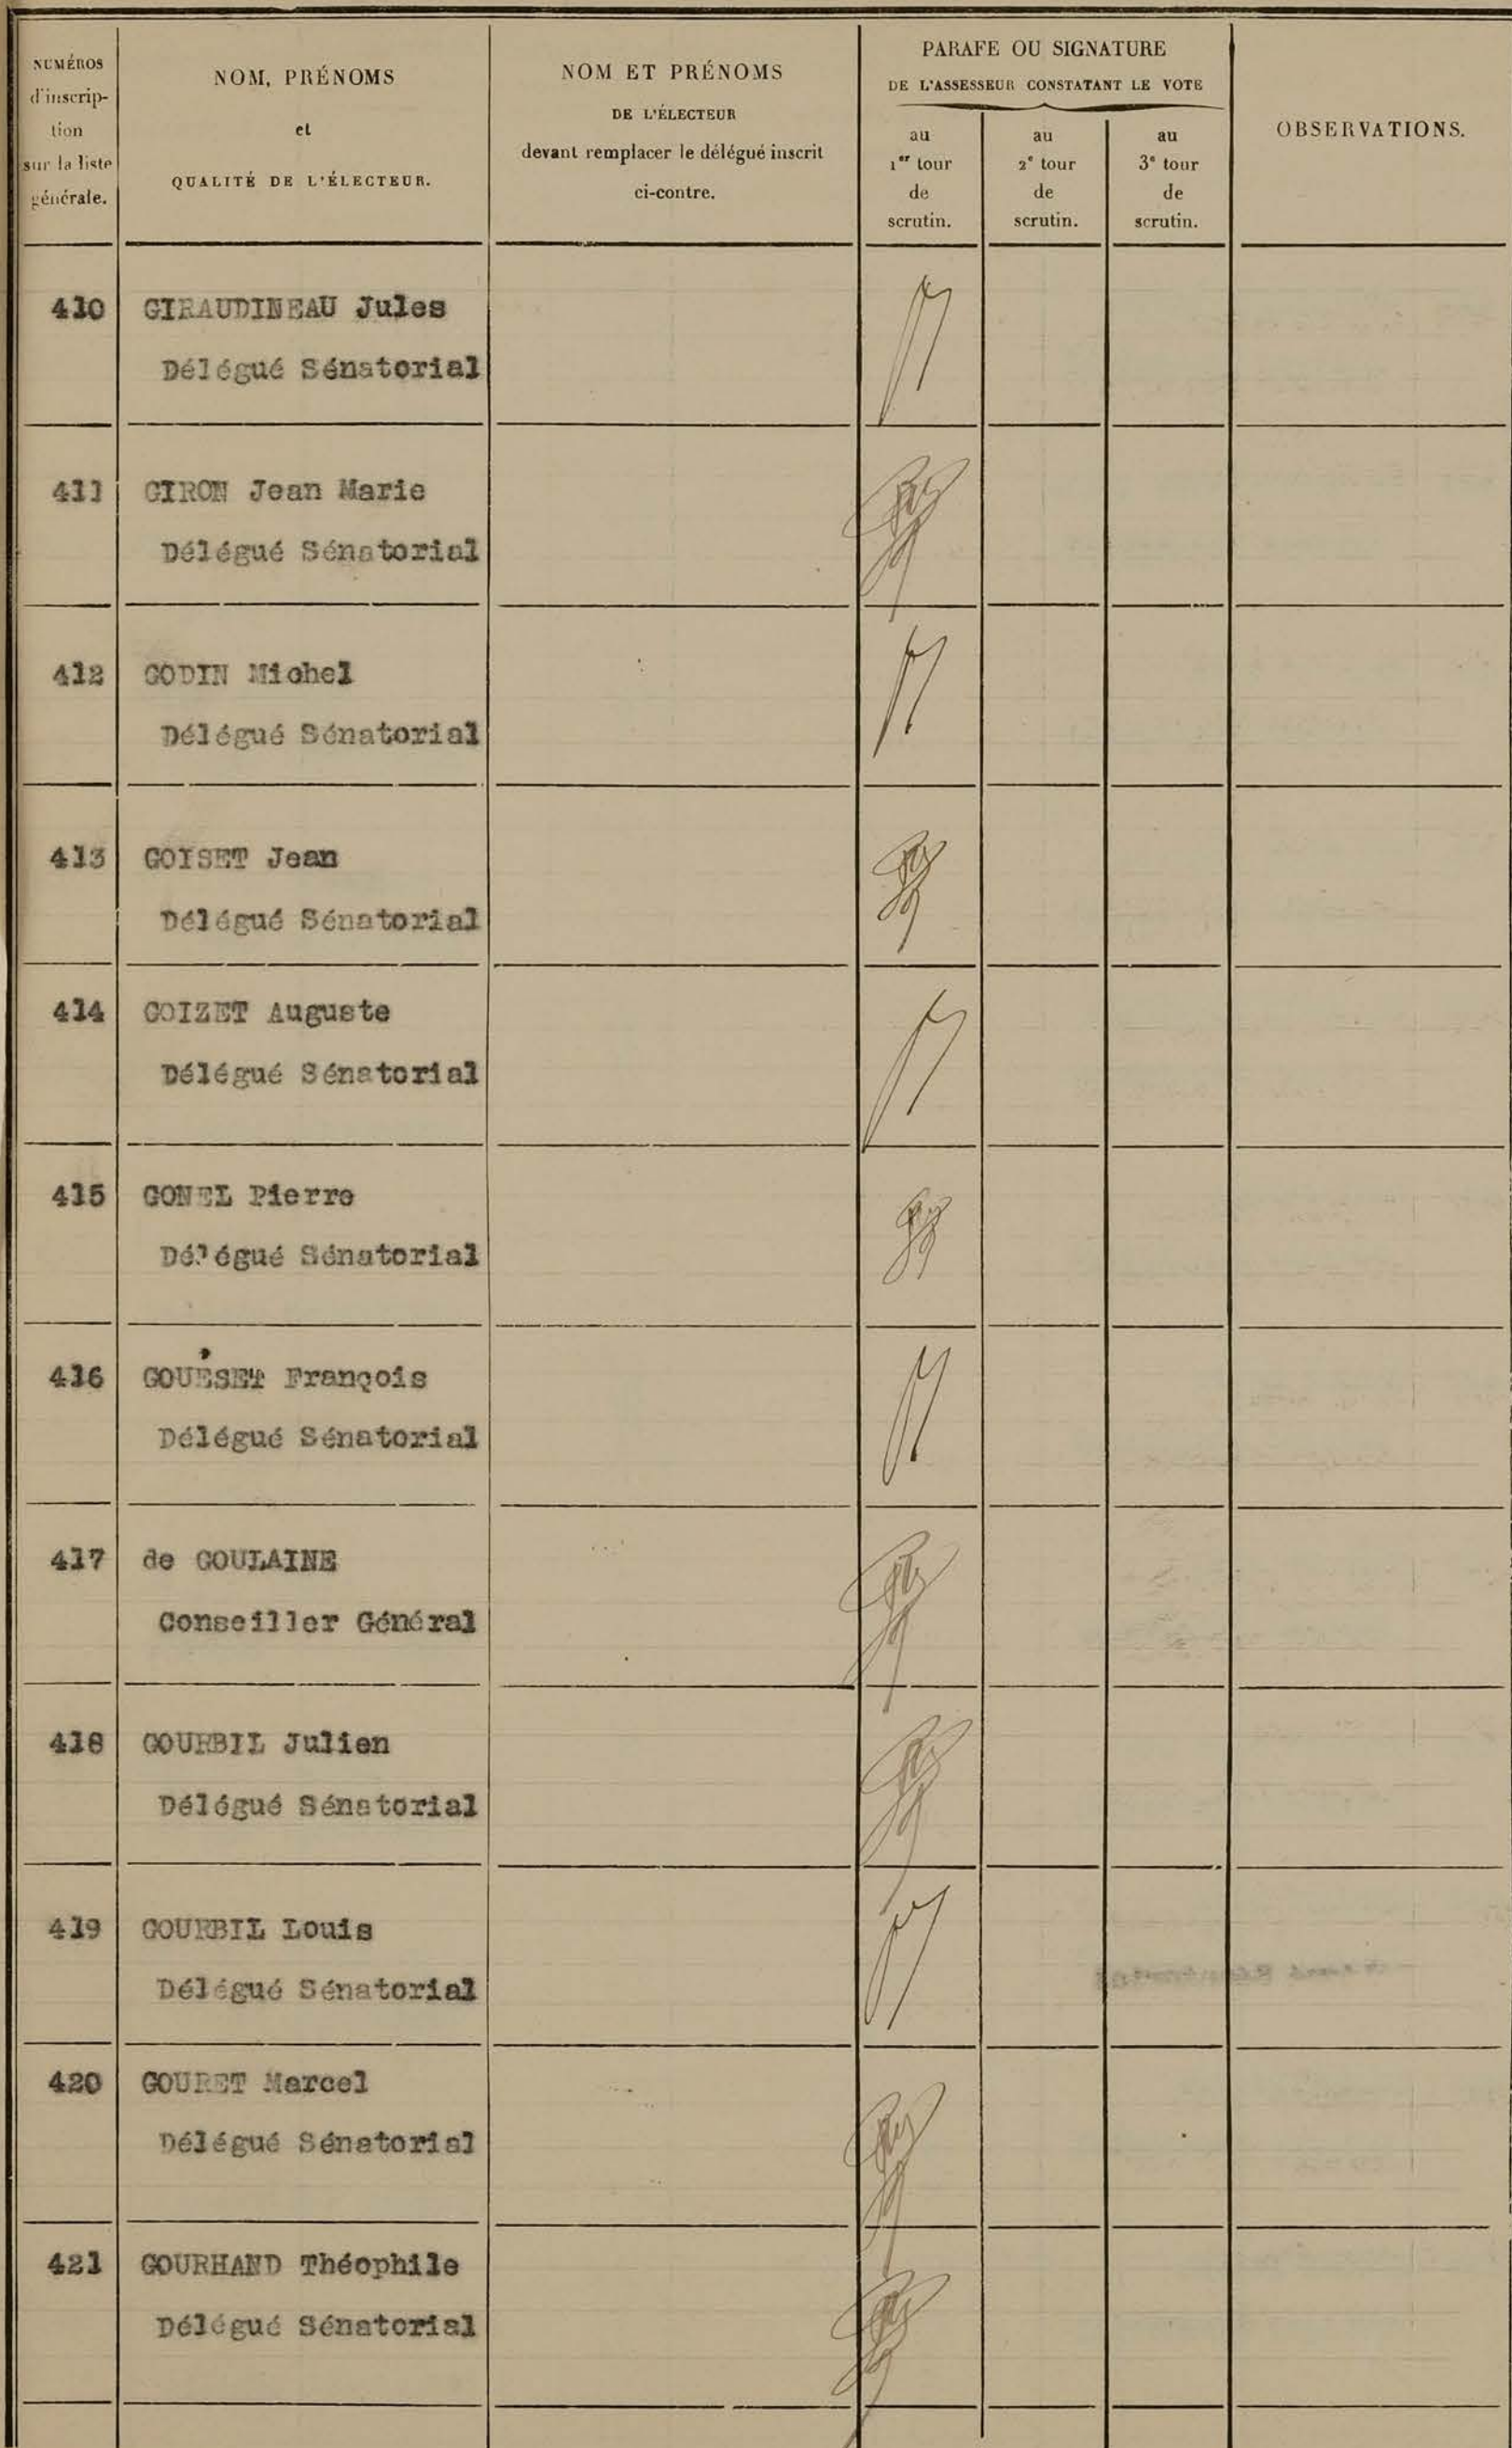 NUMÉROS
d'inscrip-
tion
sur la liste
générale.
NOM, PRÉNOMS
et
QUALITÉ DE L'ÉLECTEUR.
NOM ET PRÉNOMS
DE L'ÉLECTEUR
devant remplacer le délégué inscrit
ci-contre.
PARAFE OU SIGNATURE
DE L'ASSESSEUR CONSTATANT LE VOTE
au
1er tour
de
scrutin.
au
2e tour
de
scrutin.
au
3e tour
de
scrutin.
OBSERVATIONS.
410 GIRAUDINEAU Jules
Délégué Sénatorial
411 GIRON Jean Marie
Délégué Sénatorial
412 GODIN Michel
Délégué Sénatorial
413 GOISET Jean
Délégué Sénatorial
414 GOIZET Auguste
Délégué Sénatorial
415 GONEL Pierre
Délégué Sénatorial
416 GOUËSET François
Délégué Sénatorial
417 de GOULAINE
Conseiller Général
418 GOURBIL Julien
Délégué Sénatorial
419 GOURBIL Louis
Délégué Sénatorial
420 GOURET Marcel
Délégué Sénatorial
421 GOURHAND Théophile
Délégué Sénatorial